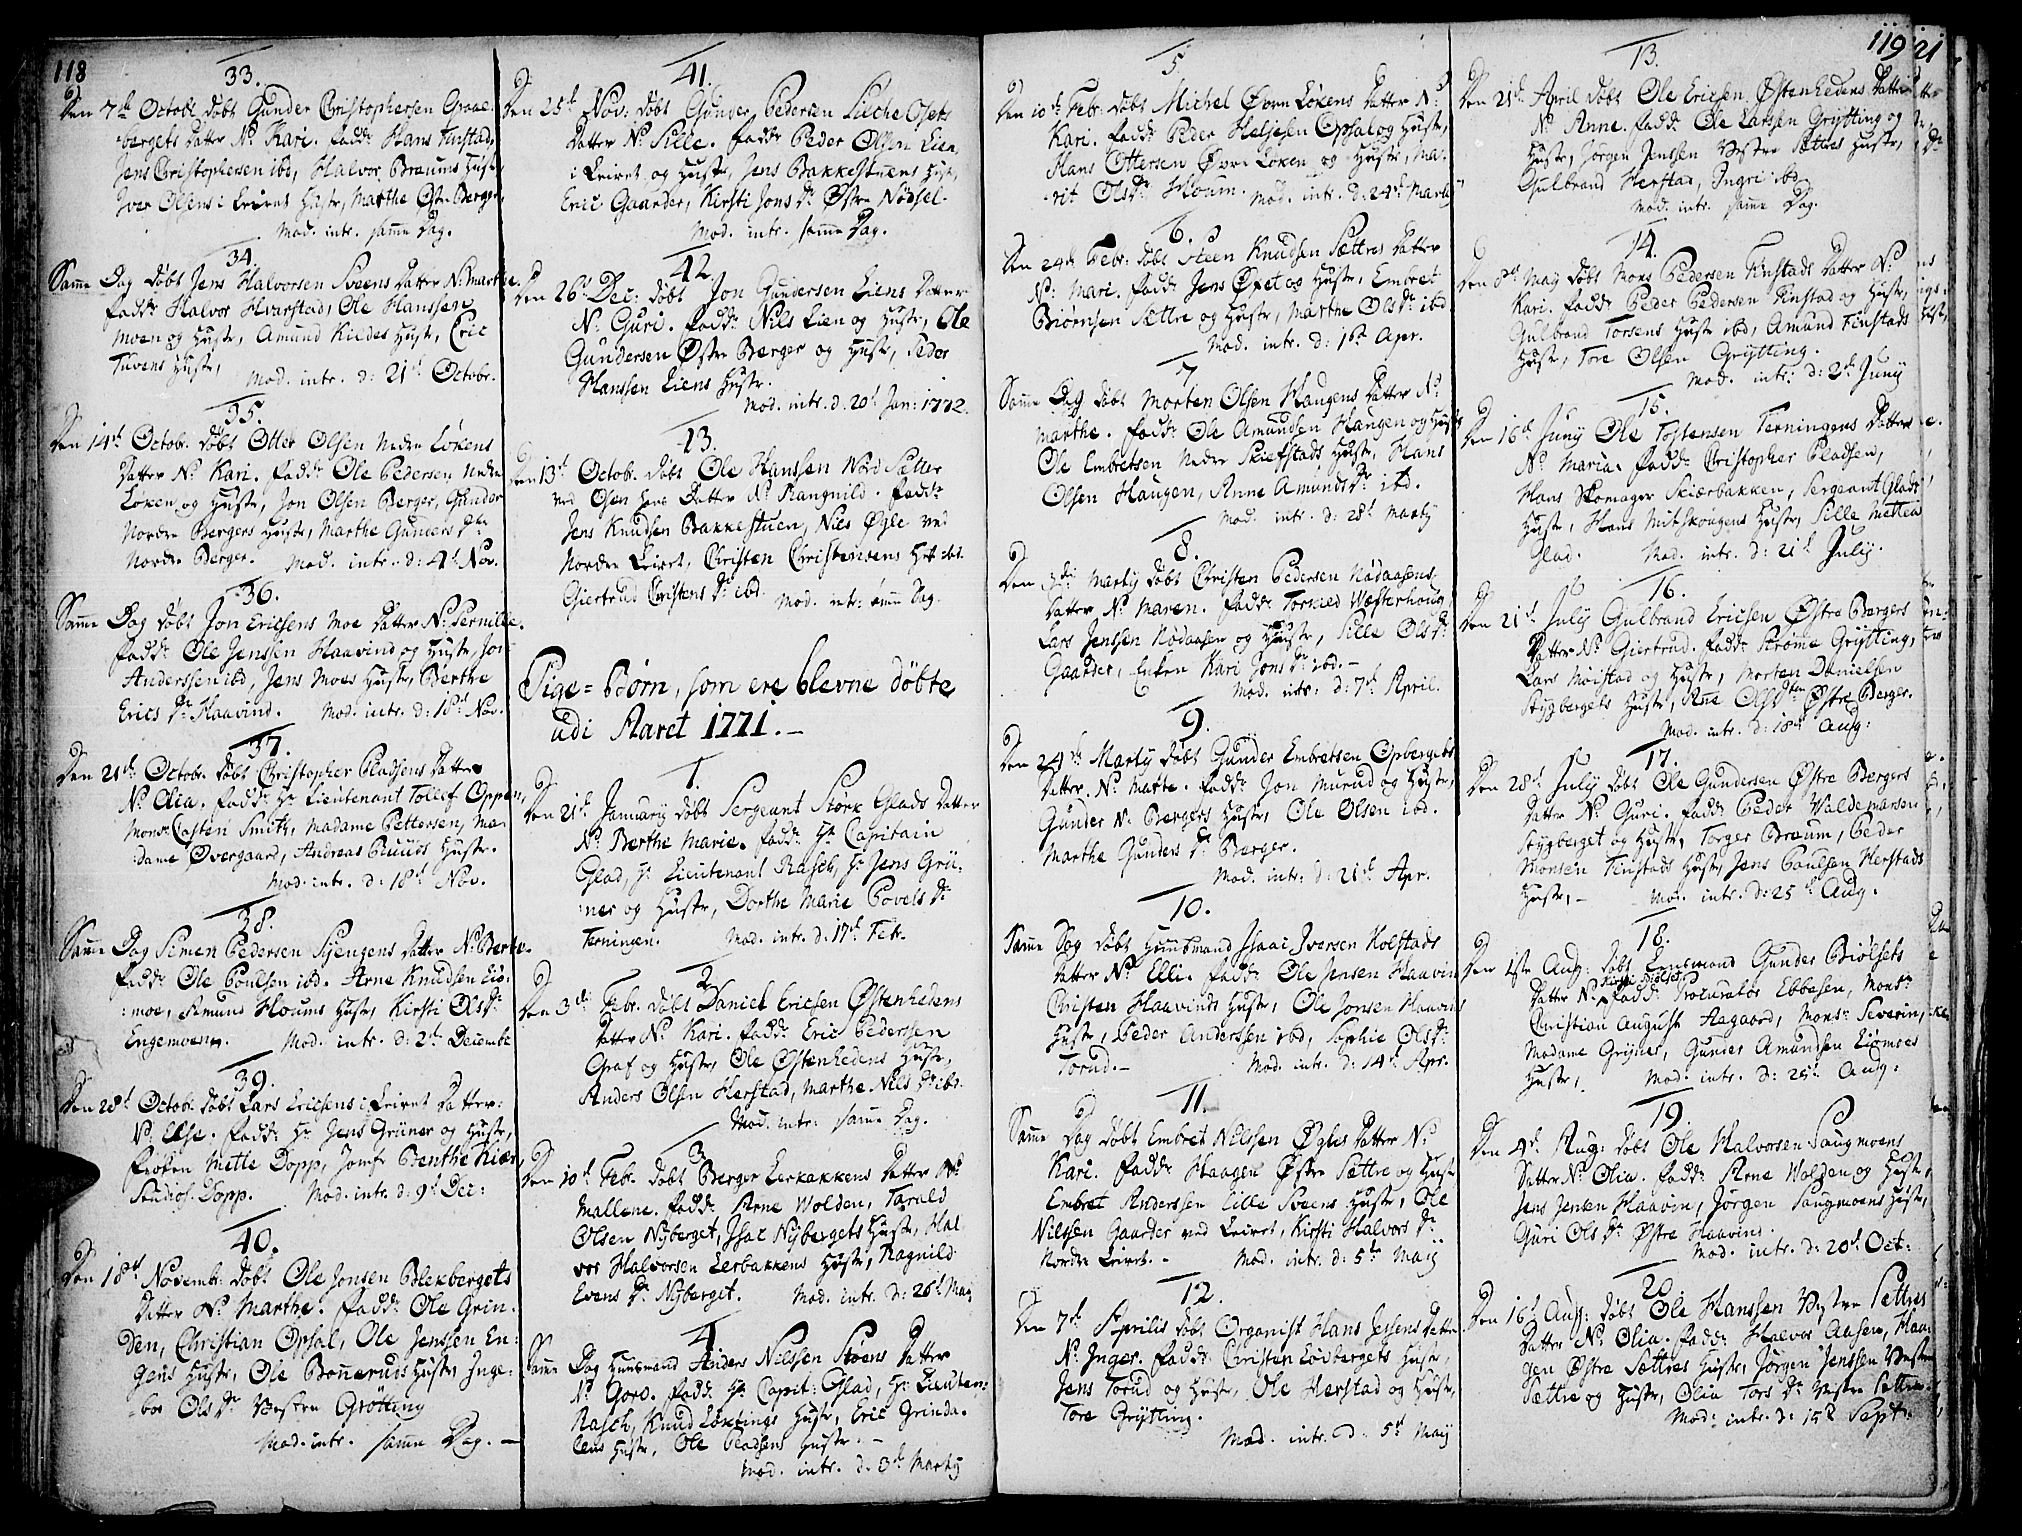 118
33.
Den 7de Octobr døbt Gunder Christophersen Graae-
bergets Datter N. Kari. fadd: Hans Finstad,
Jens Christophersen ibd, Halvor Bræums Hustr
Iver Olsens i Leiret Hustr, Marthe Østr Berger.
Mod. intr. samme Dag.
34.
Samme Dag døbt Jens Halvorsen Sveens Datter N. Marthe.
fadd: Halvor Hvarstad, Ole Hanssen
Moen og Hustr, Amund Kildes Hustr, Eric
Tuvens Hustr,
Mod. intr. d: 21d Octobr.
35.
Den 14d Octob. døbt Otter Olsen Nedre Løkens
Datter N. Kari. fadd: Ole Pedersen Nedre
Løken og Hustr, Jon Olsen Berger, Gunder
Nordre Bergers Hustr, Marthe Gunders Dtr
Nordre Berger. Mod. intr. d: 4d Nov.
36.
Samme Dag døbt Jon Ericsens Moe Datter N. Pernille.
fadd: Ole Jenssen Haavind og Hustr, Jon
Anderssen ibd, Jens Moes Hustr, Berthe
Erics Dr Haavind. Mod. intr. d: 18d Nov.
37.
Den 21d Octobr. døbt Christopher Pladsens Datter
N. Olia. fadd: Hr Lieutenant Tollef Oppen,
Monsr Casten Smith, Madame Pettersen, Ma-
dame Overgaard, Andreas Ruuds Hustr.
Mod. intr. d. 18d Nov.
38.
Samme Dag Simen Pedersen Syengens Datter N. Berte.
fadd: Ole Poulsen ibd. Arne Knudsen Liø-
moe, Amund Houms Hustr, Kirsti Ols Dr
Engemoen. Mod. intr. d: 2d Decembr
39.
Den 28d Octob. døbt Lars Ericsens i Leiret Datter
N. Else. fadd: Hr Jens Grüner og Hustr,
frøken Mette Dopp, Jomfr Benthe Kiær,
Studios. Dopp. Mod. intr. d. 9d Dec:
40.
Den 18d Novemb. døbt Ole Jonsen Blekbergets
Datter N. Marthe. fadd: Ole Grin-
den, Christian Opsal, Ole Jenssen En-
gens Hustr, Ole Bonneruds Hustr, Inge-
bor Ols Dr Vestre Grøtting
Mod. intr. samme Dag.
41.
Den 25d Nov: døbt Gunder Pedersen Lilche Osets
Datter N. Sille. fadd: Peder Olsen Lien
i Leiret og Hustr, Jens Bakkestuens Hustr,
Eric Gaarder, Kirsti Jons Dr Østre Nødsel.
Mod. intr. samme Dag.
42.
Den 26d Dec: døbt Jon Gundersen Liens Datter
N. Guri. fadd: Nils Lien og Hustr, Ole
Gundersen Østre Berger og Hustr, Peder
Hanssen Liens Hustr.
Mod. intr. d. 20d Jan: 1772.
43.
Den 13d Octob. døbt Ole Hanssen Nord Sætter
ved Osen hans Datter N. Rangnild. fadd:
Jens Knudsen Bakkestuen, Niels Øgle ved
Nordre Leiret, Christen Christensens Hustr ibd.
Giertrud Christens Dr ibd. Mod. intr: samme Dag.
Pige-Børn, som ere blevne døbte
udi Aaret 1771.
1.
Den 21d January døbt Sergeant Stork Glads Datter
N. Berthe Marie. fadd: Hr Capitain
Glad, Hr Lieutenant Rasch, Hr Jens Grü-
ner og Hustr, Dorthe Marie Povels Dr
Terningen. Mod. intr. d. 17d Febr.
2.
Den 3de Febr. døbt Daniel Ericsen Østenhedens
Datter N. Kari. fadd: Eric Pedersen
Graf og Hustr, Ole Østenhedens Hustr,
Anders Olsen Herstad, Marthe Nils Dr ibd.
Mod. intr: samme Dag.
3.
Den 10d Febr. døbt Berger Lerbakkens Datter N.
Mallene. fadd: Arne Wolden, Tarald
Olsen Nyberget, Isac Nybergets Hustr, Hal
vor Halvorsen Lerbakkens Hustr, Ragnild
Evens Dr Nyberget. Mod. intr. d: 26d May
4
Samme Dag Huusmand Anders Nilssen Stoens Datter
N. Goro. fadd: Hr Capit: Glad, Hr Lieuten:
Rasch, Knud Løktings Hustr, Eric Grinda-
lens Hustr, Ole Pladsens Hustr.
Mod. intr. d. 3d Marty
119
5
Den 10d Febr: døbt Michel Øvre Løkens Datter N.
Kari. fadd: Peder Heljesen Opsal og Hustr,
Hans Ottersen Øvre Løken og Hustr, Ma-
rit Ols Dr Houm. Mod. intr. d: 24d Marty
6.
Den 24d Febr: døbt Steen Knudsen Sættres Datter
N: Mari. fadd: Jens Øset og Hustr, Embret
Biørnsen Sættre og Hustr, Marthe Ols Dr ibd
Mod. intr. d: 1ste Apr.
7
Samme Dag døbt Morten Olsen Haugens Datter N.
Marthe. fadd: Ole Amundsen Haugen og Hustr
Ole Embretsen Nedre Skiefstads Hustr, Hans
Olsen Haugen, Anne Amunds Dr ibd.
Mod. intr. d: 28d Marty
8.
Den 3de Marty døbt Christen Pedersen Nødaasens
Datter N. Maren. fadd: Torkild Wæsterhoug
Lars Jenssen Nødaasen og Hustr, Sille Ols Dr
Gaarder, Enken Kari Jons Dr ibd.
Mod. intr: d: 7d April.
9.
Den 24d Marty døbt Gunder Embretsen Opbergets
Datter N. Marte. fadd: Jon Murud og Hustr,
Gunder N. Bergers Hustr, Ole Olsen ibd.
Marthe Gunders Dr Berger.
Mod. intr: d: 21d Apr.
10.
Samme Dag døbt Huusmand Isaac Iversen Kolstads
Datter N. Elli. fadd: Ole Jensen Haavin
Christen Haavinds Hustr, Ole Jonsen Haavinds
Hustr, Peder Anderssen ibd, Sophie Ols Dr
Torud. Mod. intr. d: 14d Apr.
11.
Samme Dag døbt Embret Nilssen Øgles Datter N.
Kari. fadd: Haagen Østre Sættre og Hustr
Embret Anderssen Lille Sveens Hustr, Ole
Nilssen Gaarder ved Leiret, Kirsti Halvors Dr
Nordre Leiret. Mod. intr. d: 5te Maij
12.
Den 7d Aprilis døbt Organist Hans Jessens Datter
N. Inger. fadd: Christen Løvbergets Hustr,
Jens Torud og Hustr, Ole Herstad og Hustr,
Tore Grytting.
Mod. intr. d. 5d Maij
13.
Den 21d April døbt Ole Ericsen Østenhedens Datter
N. Anne. fadd: Ole Larssen Grytting og
Hustr, Jørgen Jenssen Vestre Sættres Hustr,
Gulbrand Herstad, Ingri ibd
Mod. intr. samme Dag.
14.
Den 8d May døbt Mons Pedersen Finstads Datter N.
Kari. fadd: Peder Pedersen Finstad og Hustr,
Gulbrand Torsens Hustr ibd, Amund Finstads
Hustr, Tore Olsen Grytting.
Mod. intr: d: 2d Juny
15.
Den 16d Juny Ole Tostensen Terningens Datter
N. Maria. fadd: Christopher Pladsen,
Hans Skomager Skiærbakken, Sergeant Glads
Hustr, Hans Mitskougens Hustr, Sille Mettea
Glad. Mod. intr. d: 21d July.
16.
Den 21d July Gulbrand Ericsen Østre Bergers
Datter N. Giertrud. fadd: Strøme Grytting,
Lars Møistad og Hustr, Morten Danielsen
Stygbergets Hustr, Ane Ols Dtr Østre Berger.
Mod. intr. d: 18d Aug:
17.
Den 28d July døbt Ole Gundersen Østre Bergers
Datter N. Guri. fadd: Peder Waldemarsen
Stygberget og Hustr, Torger Bræum, Peder
Monsen Finstads Hustr, Jens Poulsen Herstads
Hustr, Mod. intr. d: 25d Aug.
18.
Den 1ste Aug: døbt Gunder Biølsets
Datter N. fadd: Procurator Ebbesen, Monsr
Christian August Aagaard, Monsr Severin,
Madame Gryner, Gunder Amundsen Liømoes
Hustr, Mod. intr. d: 25d Aug:
19.
Den 4d Aug: døbt Ole Halvorsen Saugmoens
Datter N. Olia. fadd: Arne Wolden og Hustr,
Jens Jensen Haavin, Jørgen Saugmoens Hustr,
Guri Ols Dr Østre Haavind.
Mod. intr. d: 20d Oct:
20
Den 16d Aug: døbt Ole Hanssen Vestre Settres
Datter N. Olia. fadd: Halvor Aasen, Haa-
gen Østre Sættres Hustr, Jørgen Jenssen Vestre
Sættre og Hustr, Olia Tors Dr Vestre Settre.
Mod. intr. d. 15d Sept: